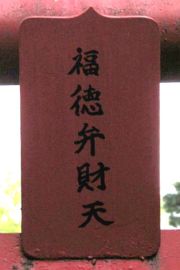 福徳弁財天